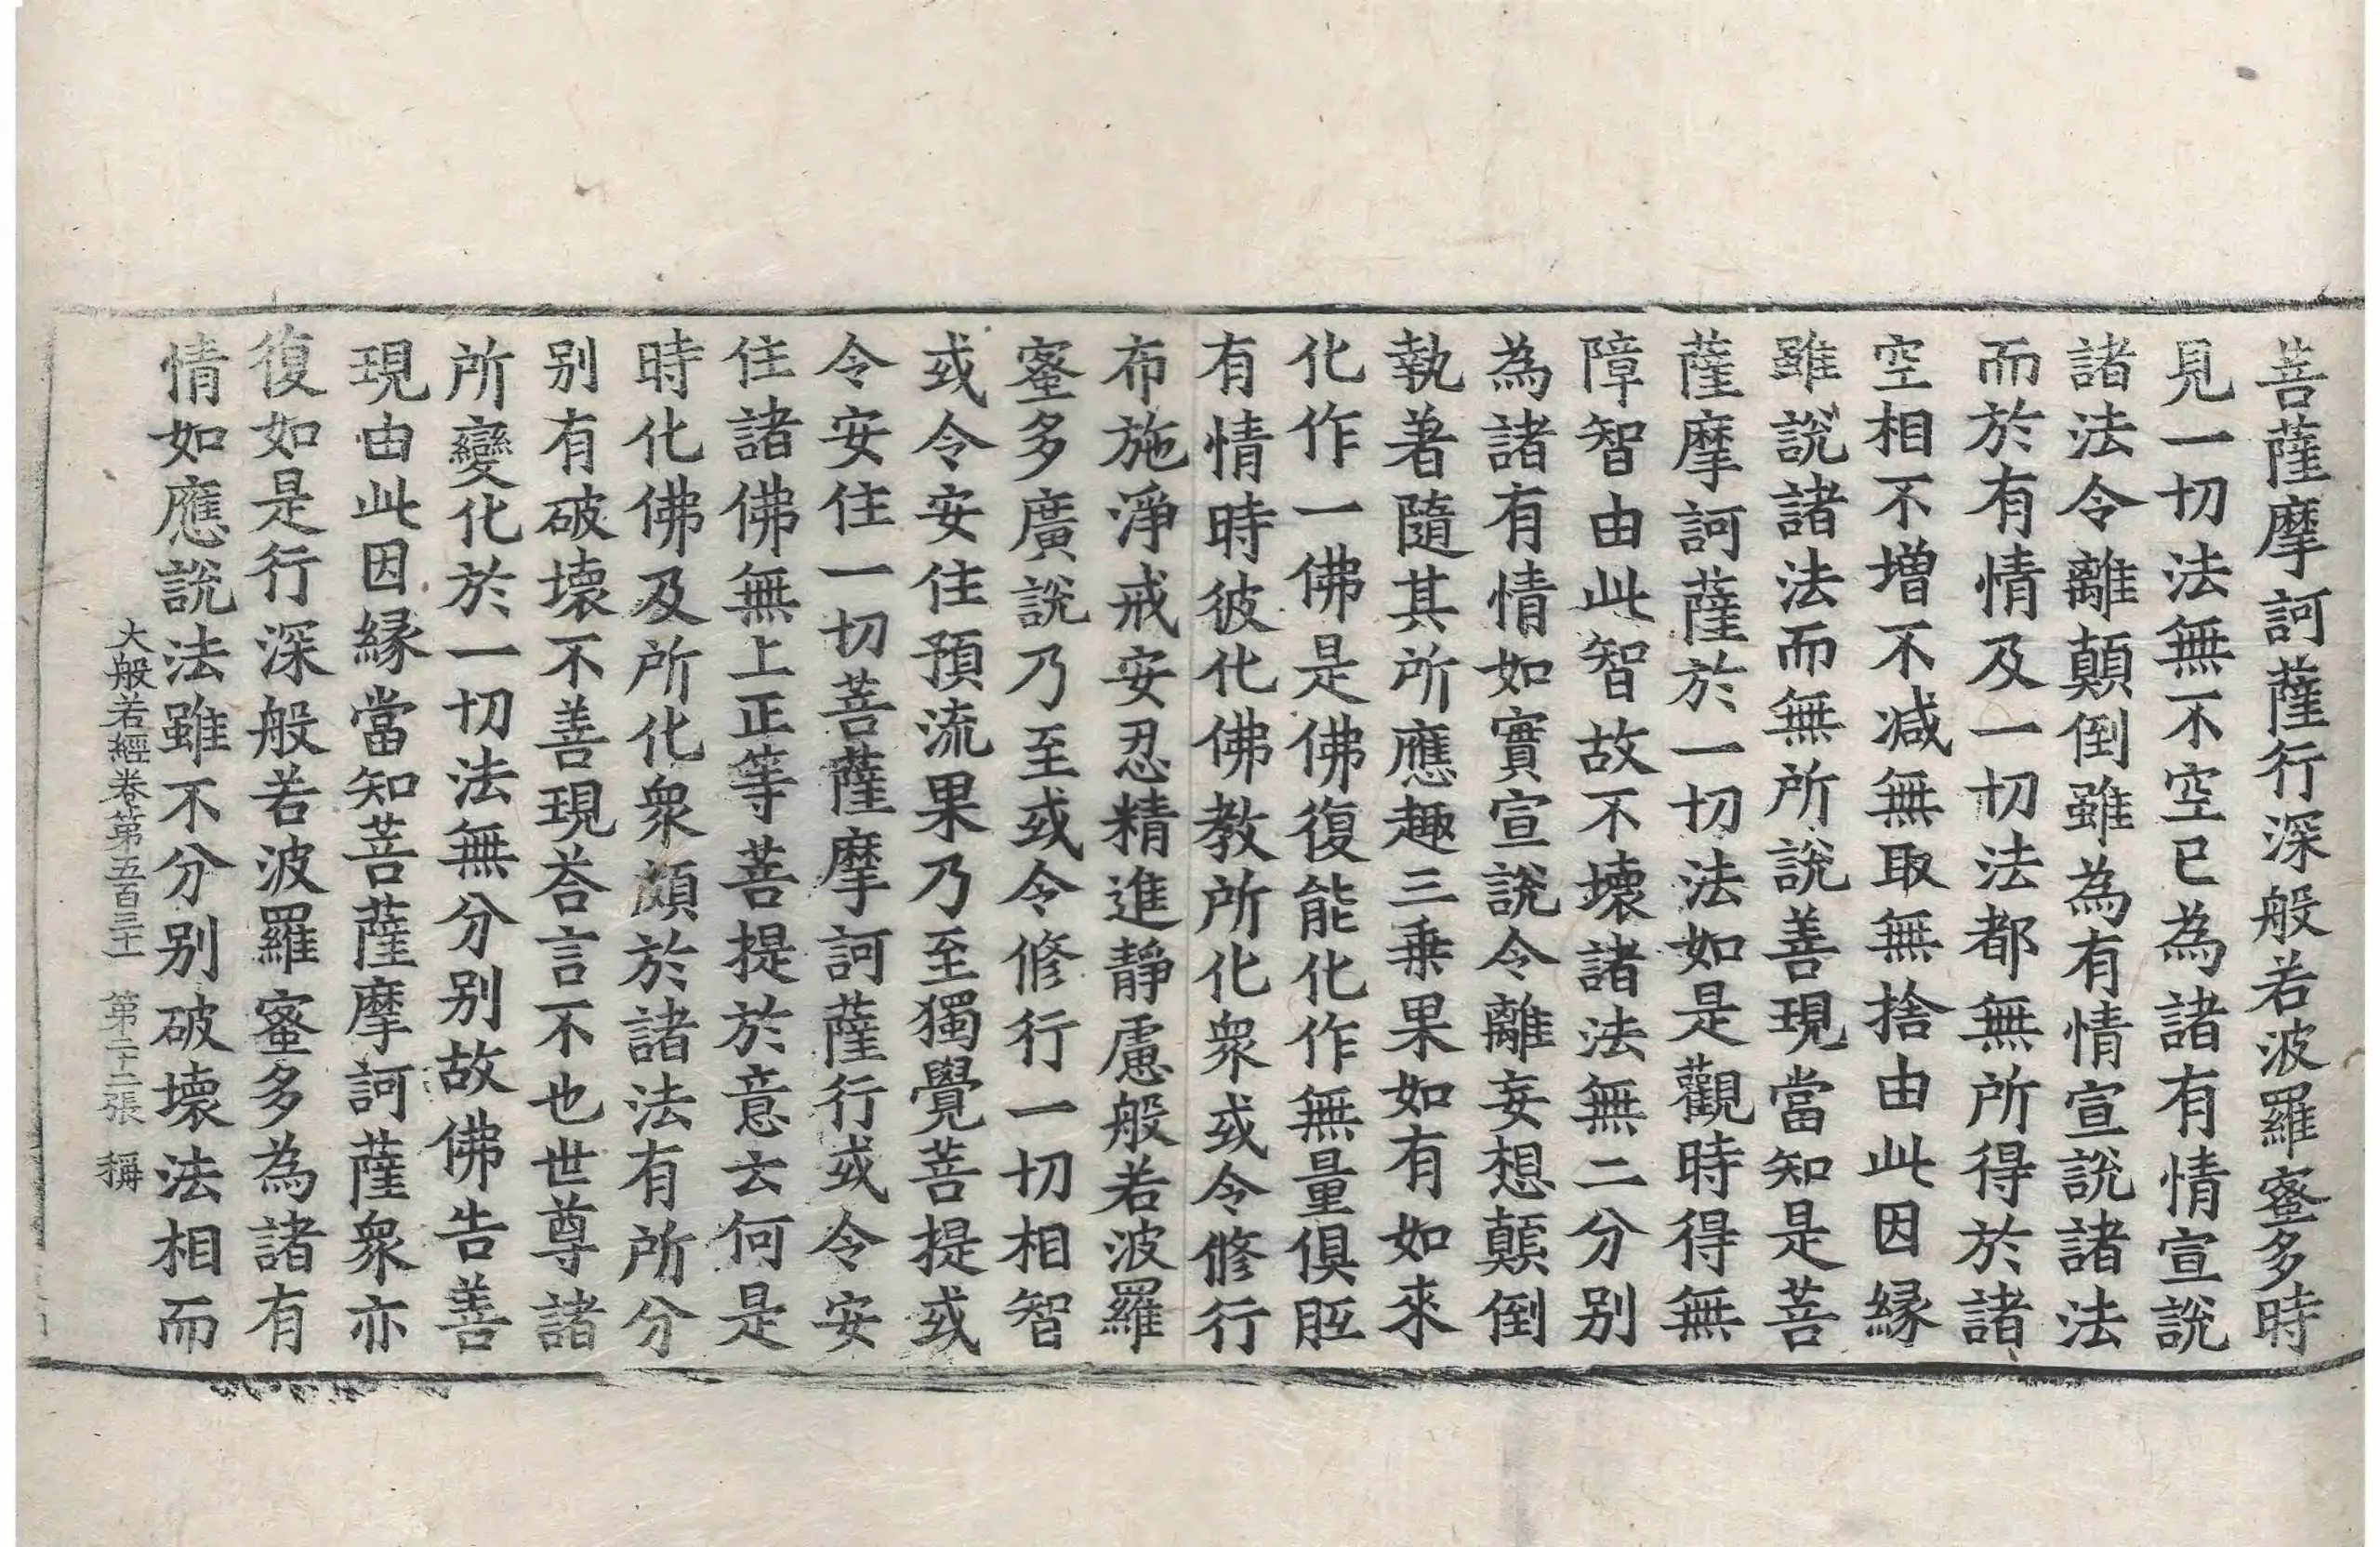 菩薩摩訶薩行深般若波羅蜜多時
見一切法無不空已為諸有情宣說
諸法令離顛倒雖為有情宣說諸法
而於有情及一切法都無所得於諸
空相不增不減無取無捨由此因緣
雖說諸法而無所說善現當知是菩
薩摩訶薩於一切法如是觀時得無
障智由此智故不壞諸法無二分別
為諸有情如實宣說令離妄想顛倒
執著隨其所應趣三乗果如有如來
化作一佛是佛復能化作無量俱胝
有情時彼化佛教所化衆或令修行
布施淨戒安忍精進靜慮般若波羅
蜜多廣說乃至或令修行一切相智
或令安住預流果乃至獨覺菩提或
令安住一切菩薩摩訶薩行或令安
住諸佛無上正等菩提於意云何是
時化佛及所化衆頗於諸法有所分
別有破壞不善現荅言不也世尊諸
所變化於一切法無分別故佛告善
現由此因緣當知菩薩摩訶薩衆亦
復如是行深般若波羅蜜多為諸有
情如應說法雖不分別破壞法相而
大般若經卷第五百三十 第二十二張 稱